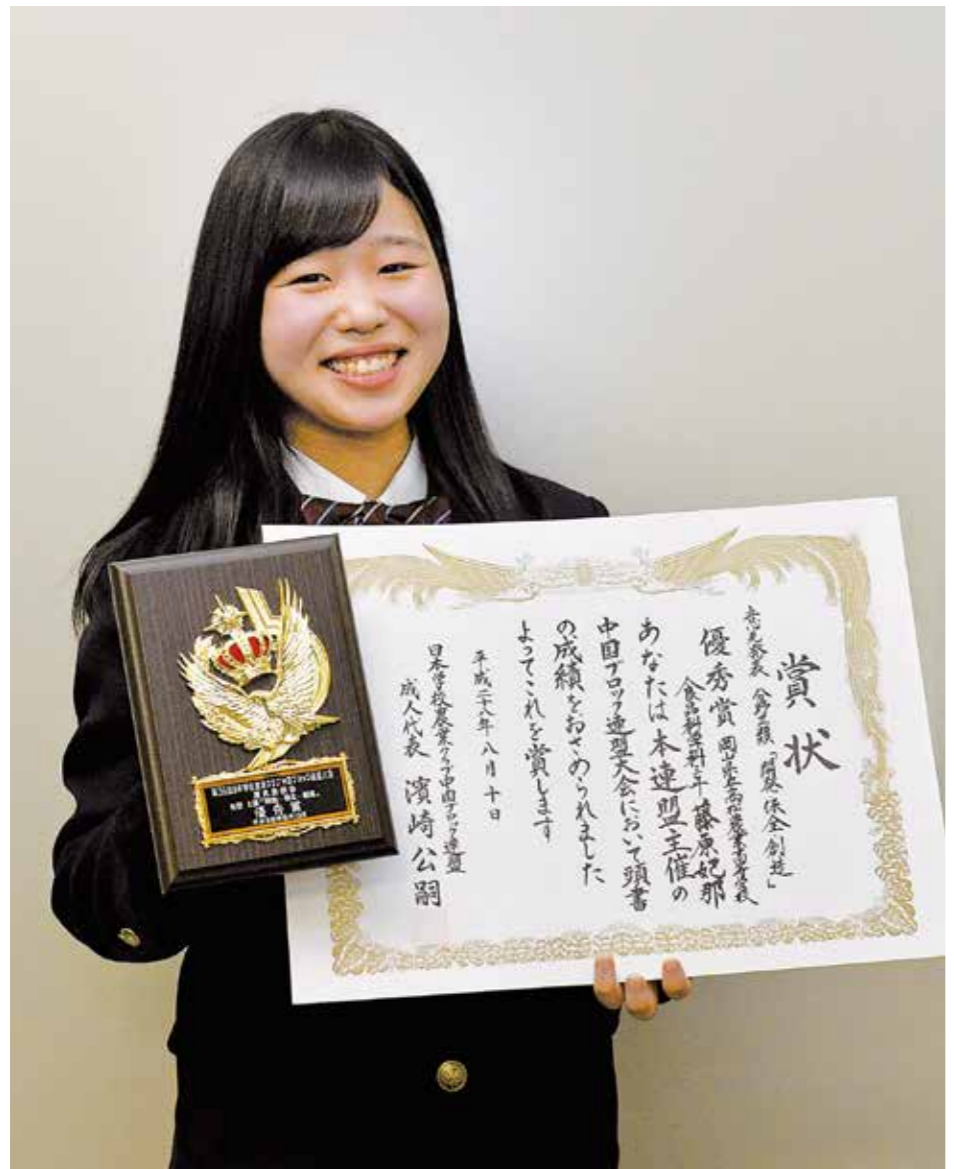 賞状
意見発表 分野Ⅱ類「開発・保全・創造」
優秀賞 岡山県立高松農業高等学校
食品科学科三年 藤原妃那
あなたは本連盟主催の
中国ブロック連盟大会において頭書
の成績をおさめられました
よってこれを賞します
平成二十八年八月十日
日本学校農業クラブ中国ブロック連盟
成人代表 濱崎公嗣
優秀賞